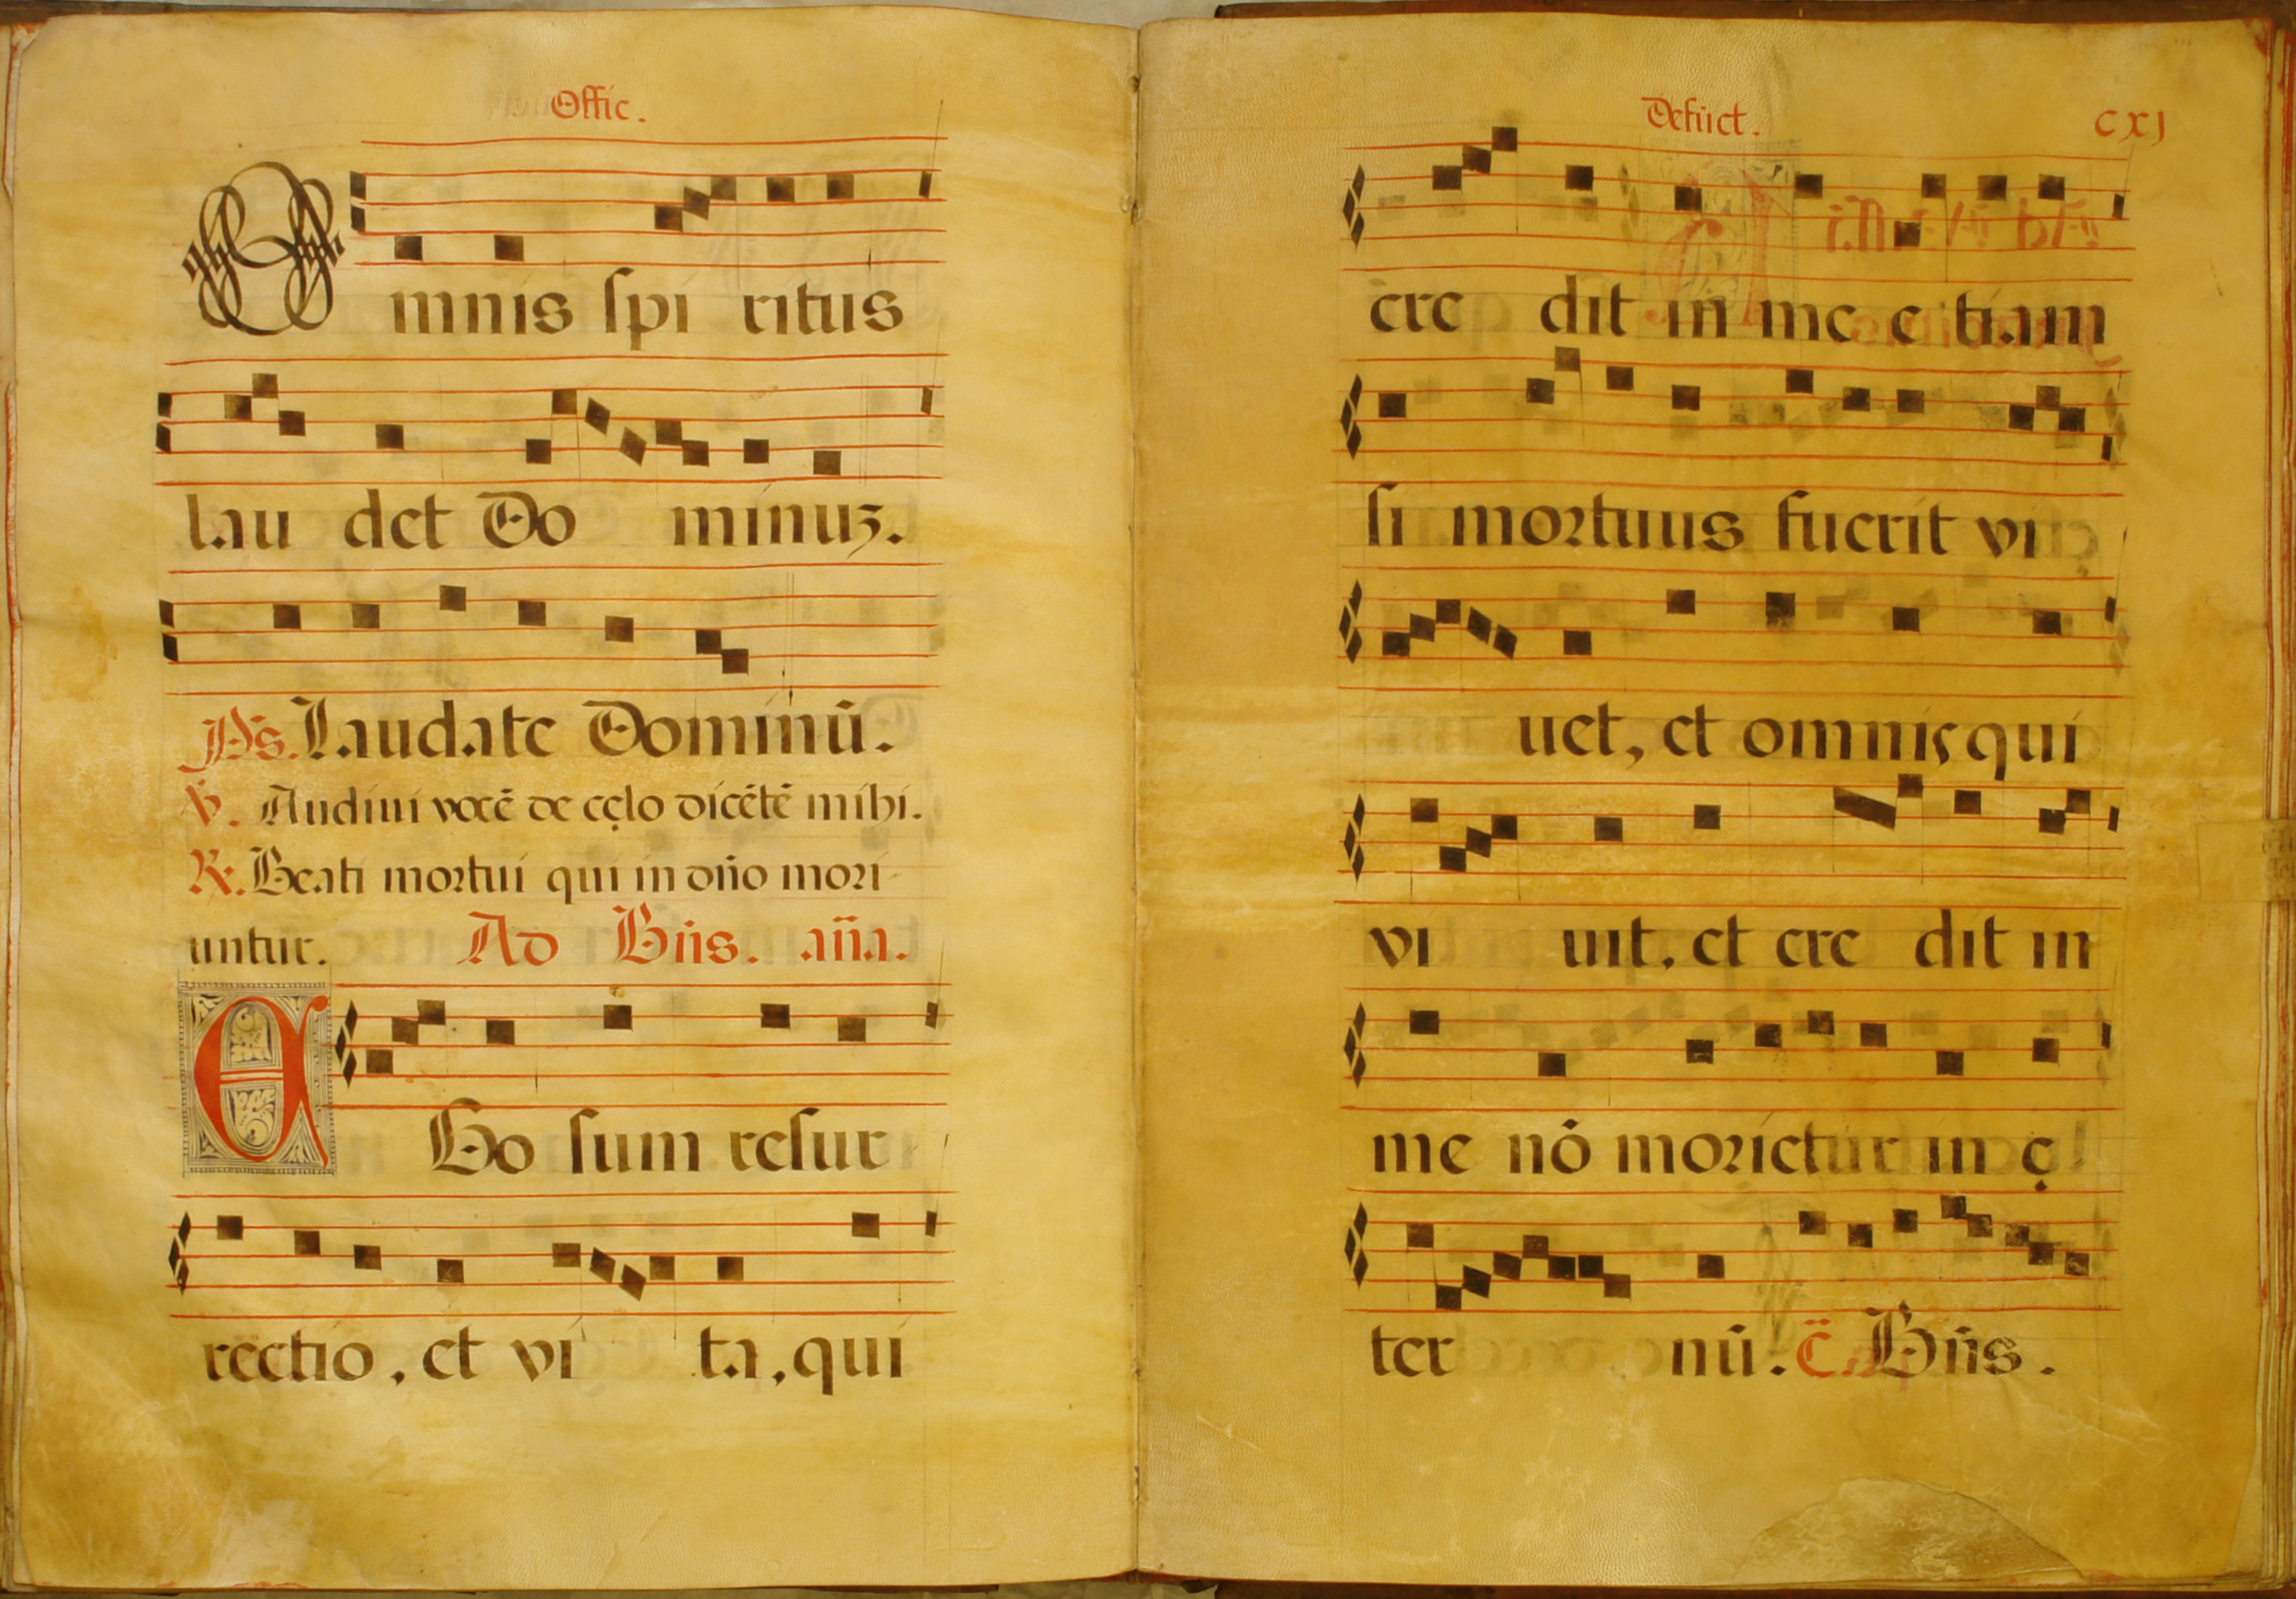 Offic.
Omnis spi ritus
lau det Do minuz.
Ps. Laudate Dominū.
V. Audiui vocē de cęlo dicētē mihi.
R. Beati mortui qui in dño mori
untur. Ad Bñs. aña.
EGo sum resur
rectio, et vi ta, qui
Defūct. cxj
cre dit in me e tiam
si mortuus fuerit vi
uet, et omnis qui
vi uit, et cre dit in
me nō morietur in ę
ter nū. C̄. Bñs.